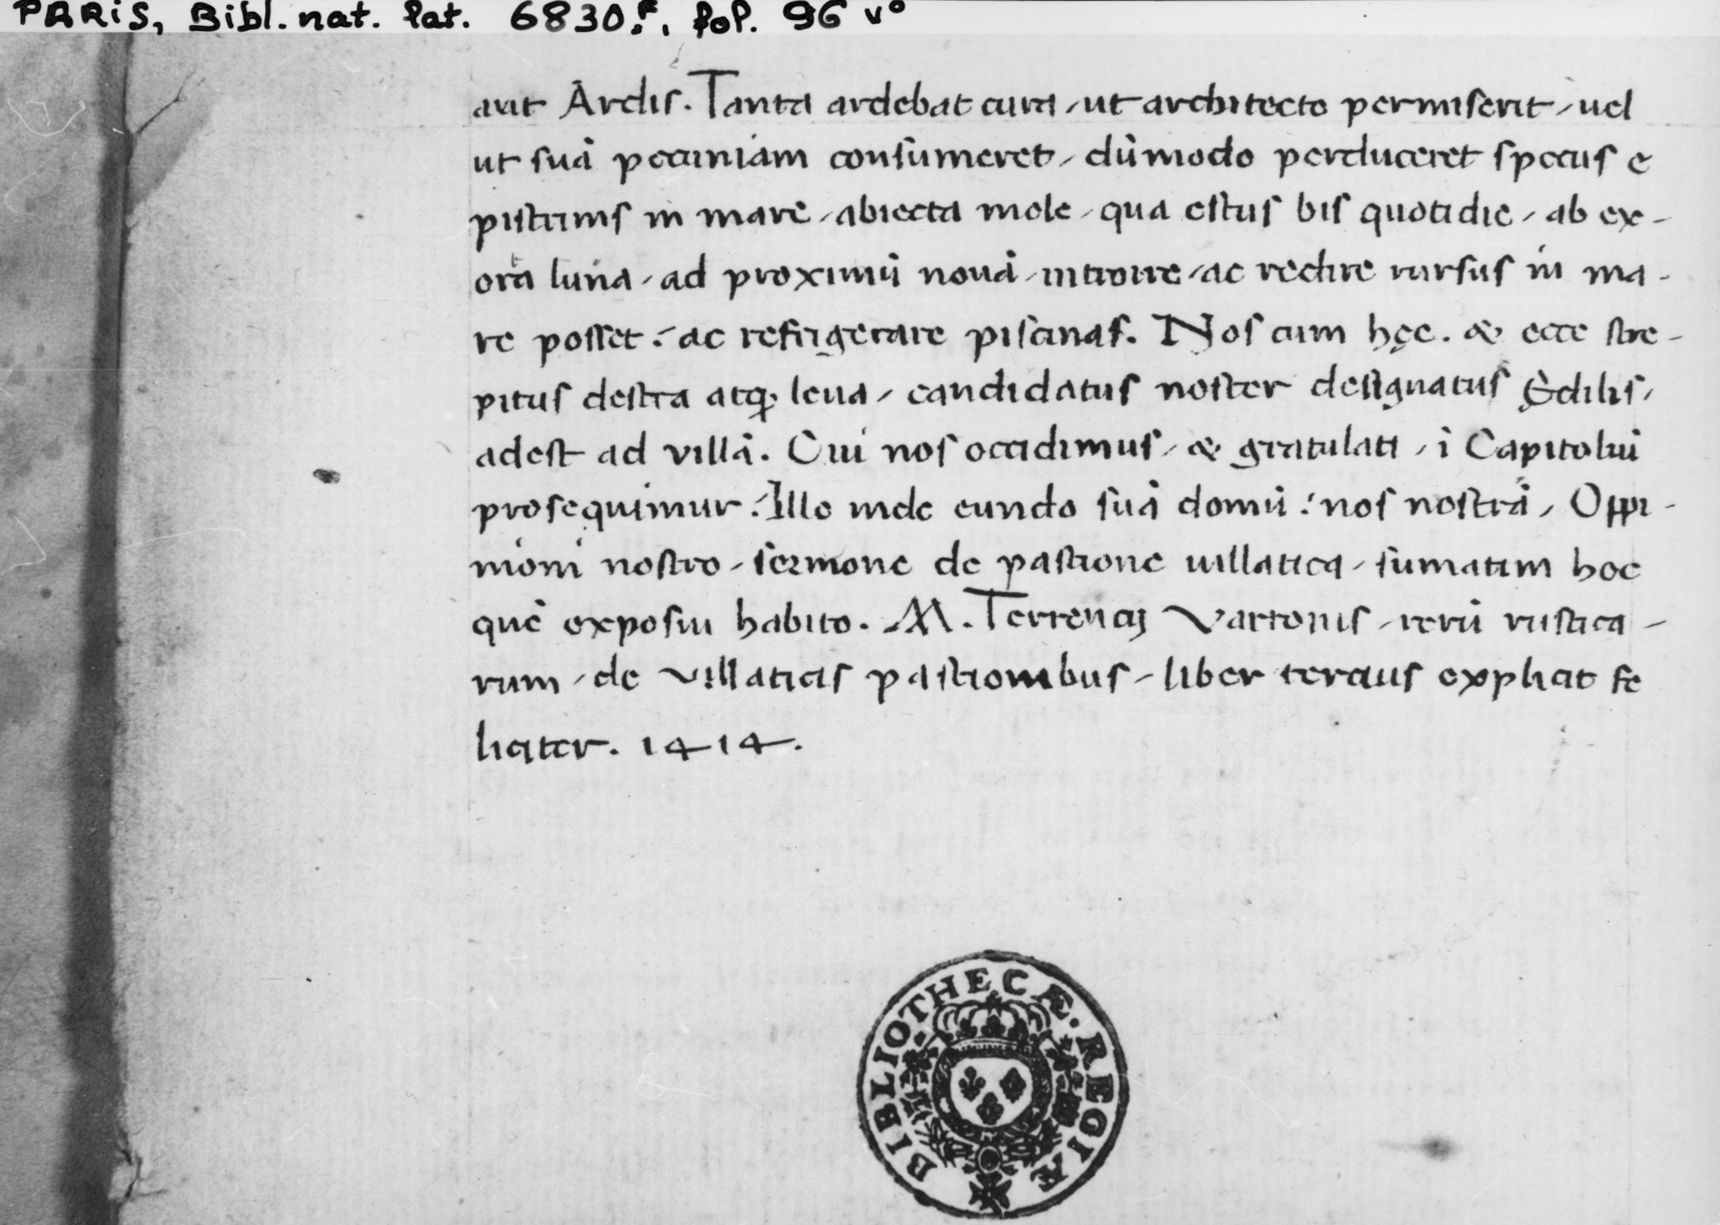 PARIS, Bibl. nat. lat. 6830 F, fol. 96 v°
auit Ardis. Tanta ardebat cura, ut architecto permiserit, uel
ut suā pecuniam consumeret, dūmodo perduceret specus e
piscinis in mare, abiecta mole, qua estus bis quotidie, ab ex-
orta luna, ad proximū nouā, introire, ac redire rursus in ma-
re posset: ac refrigerare piscinas. Nos cum hęc. & ecce stre-
pitus destra atq; leua, candidatus noster designatus Ędilis,
adest ad villā. Cui nos occidimus, & gratulati, ī Capitoliū
prosequimur: Illo inde eundo suā domū: nos nostrā, Oppi-
nioni nostro, sermone de pastione uillatica, sumatim hoc
quē exposui habito. M. Terrencij Varronis, rerū rustica-
rum, de villaticis pastionibus, liber tercius explicit fe
liciter. 1414.
BIBLIOTHECÆ REGIÆ